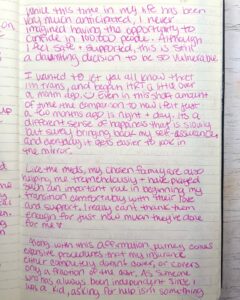 While this time in my life has been
very much anticipated, I never
imagined having the opportunity to
confide in 100,000 people. Although
I feel safe + supported, this is still
a daunting decision to be so vulnerable.
I wanted to let you all know that
I'm trans, and began HRT a little over
a month ago. Even in this small amount
of time the comparison to how I felt just
a two months ago is night + day. It's a
different sense of happiness that is slowly
but surely bringing back my self-assurance,
and everyday it gets easier to look in
the mirror.
Like the meds, my chosen family are also
helping me tremendously + have played
such an important role in beginning my
transition comfortably with their love
and support. I really can't thank them
enough for just how much they've done
for me ♥
Along with this affirmation journey comes
expensive procedures that my insurance
either completely doesn't cover, or covers
only a fraction of the cost. As someone
who has always been independent since I
was a kid, asking for help isn't something